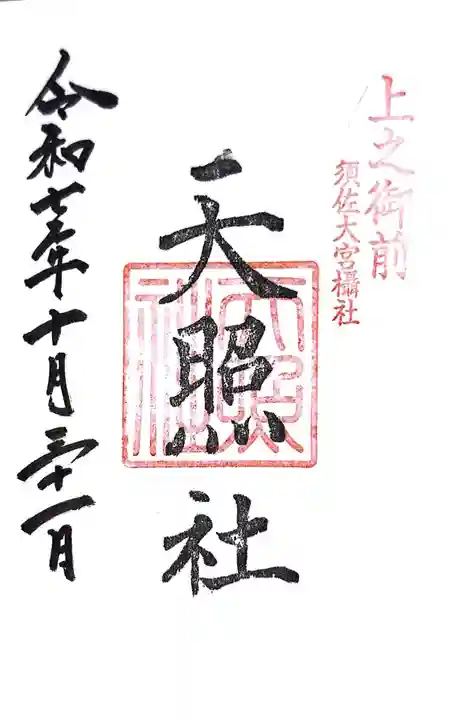 上之御前
須佐大宮攝社
天照社
天照社
令和七年十月三十一日